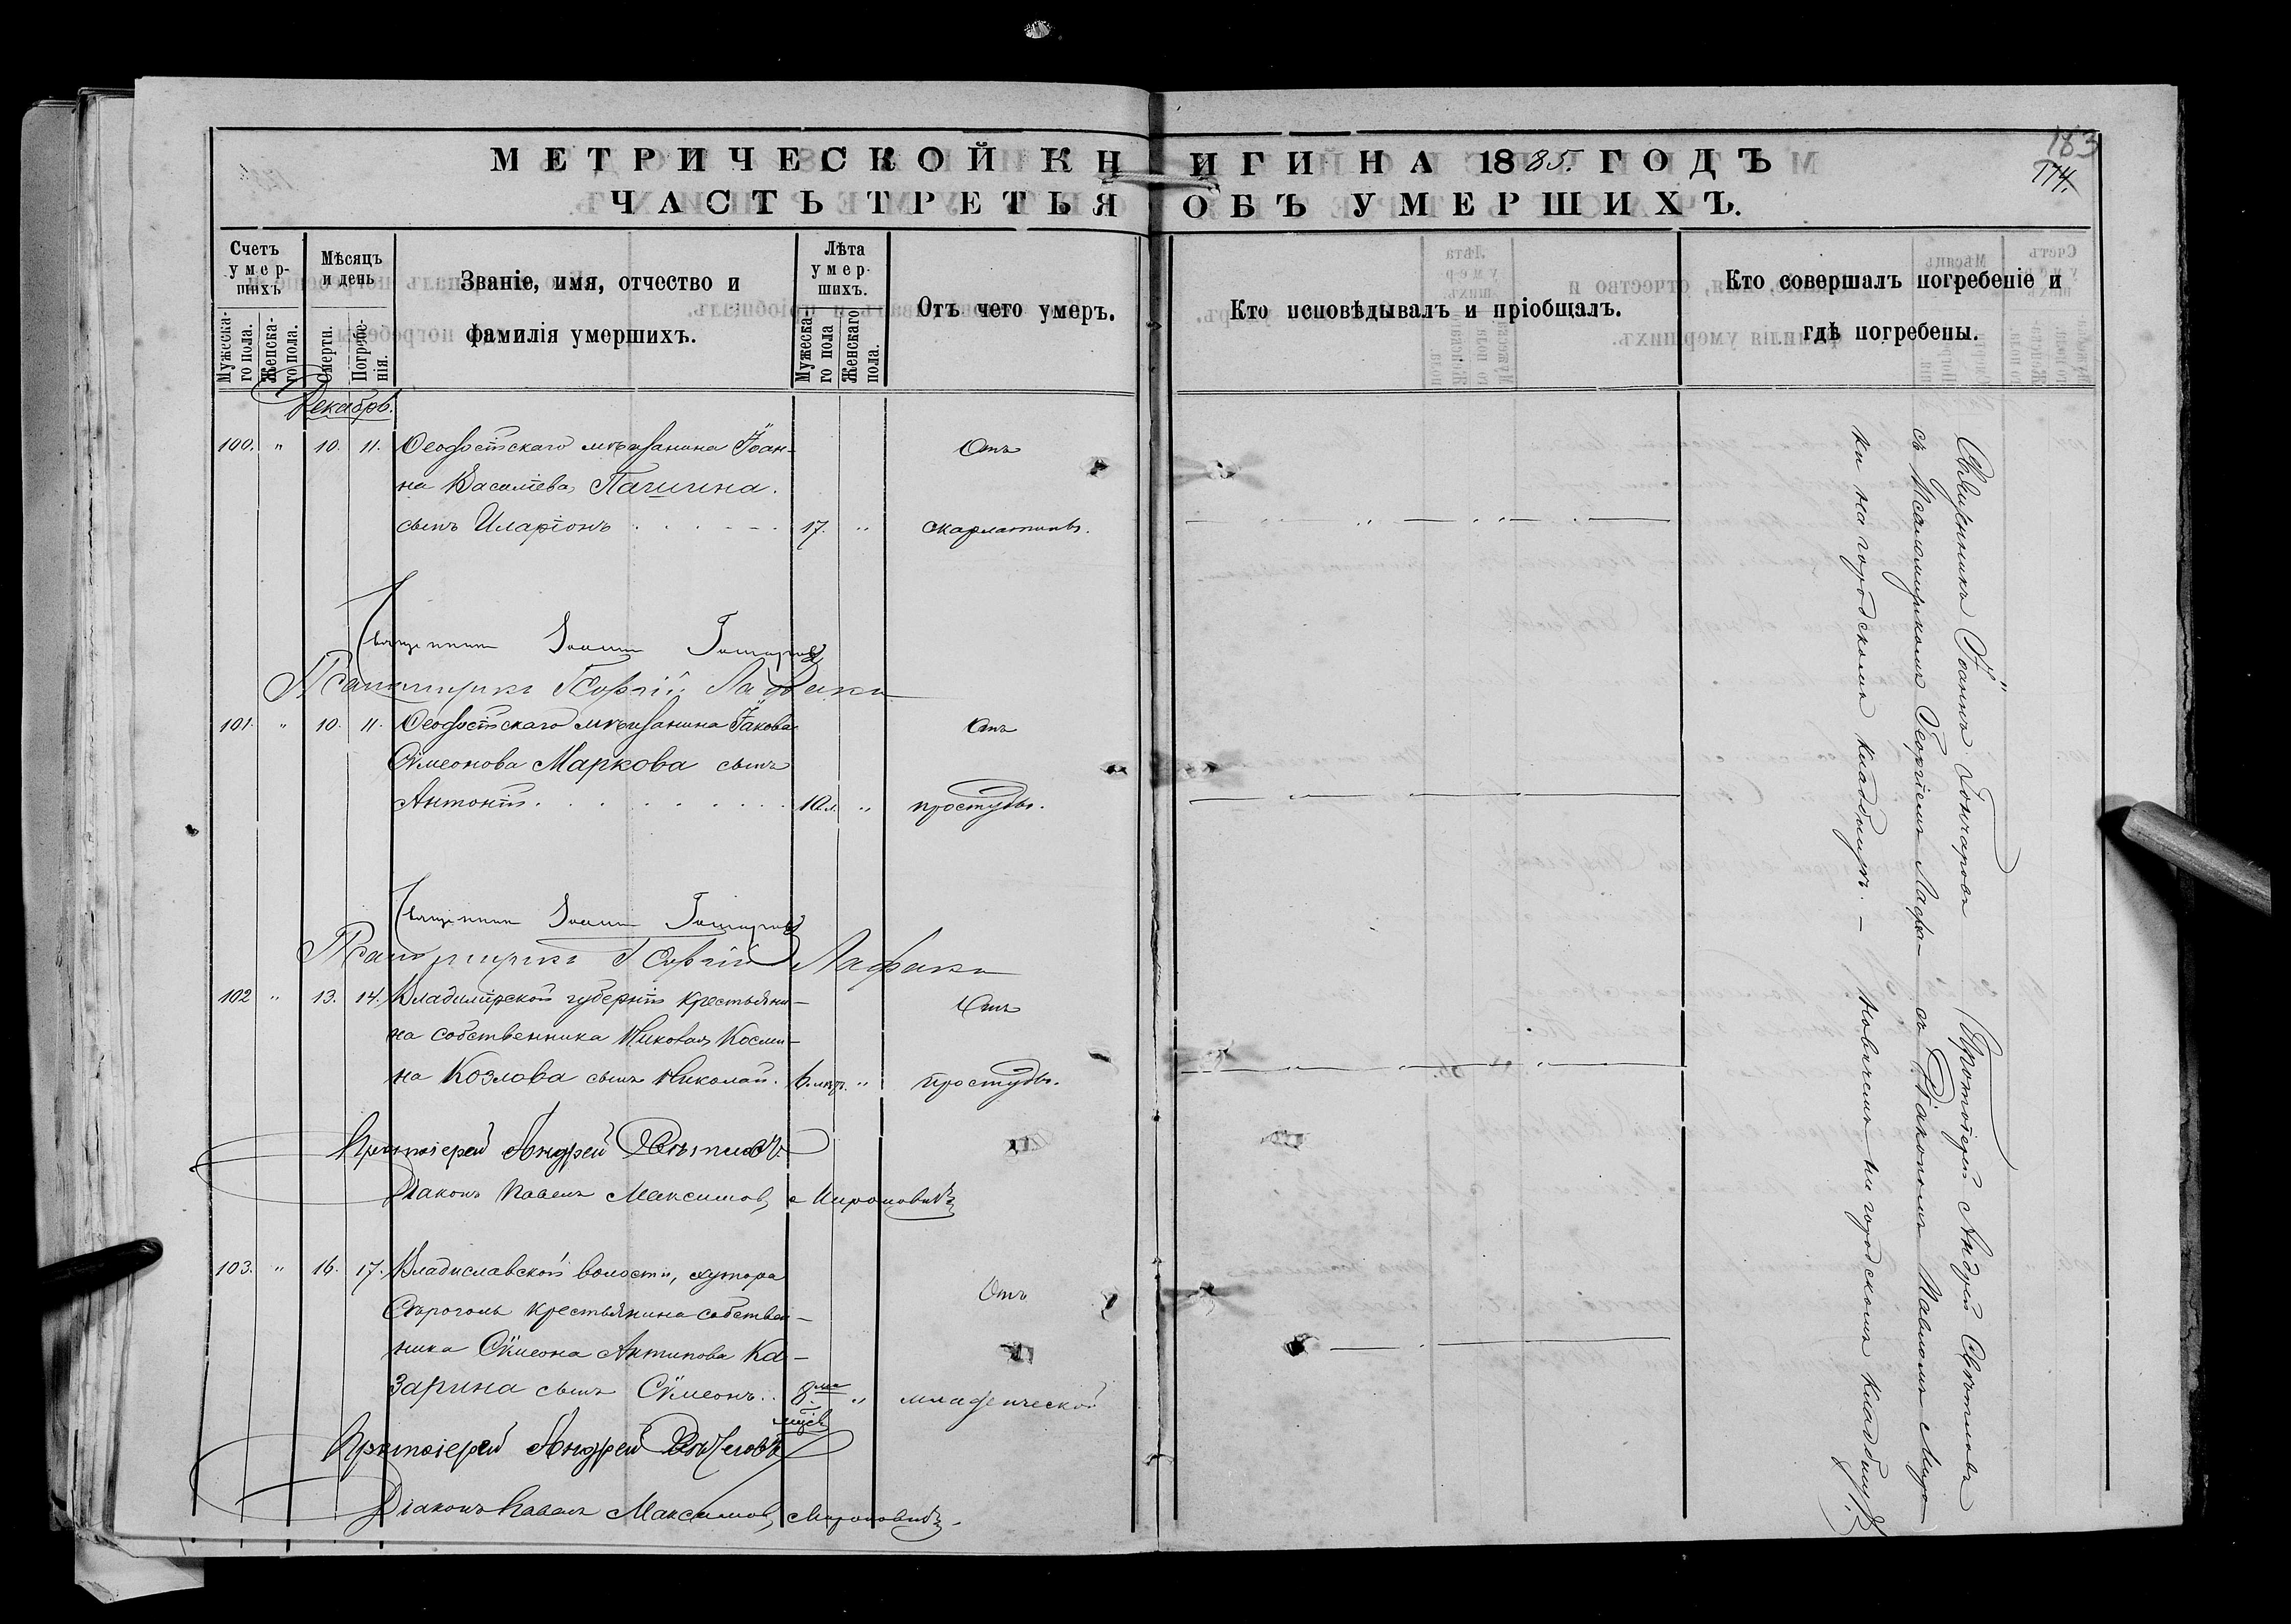 183
174.
МЕТРИЧЕСКОЙ КНИГИ НА 1885. ГОДЪ
ЧАСТЬ ТРЕТЬЯ ОБЪ УМЕРШИХЪ.
Счетъ умер-шихъ
Мужеска-го пола.
Женска-го пола.
Мѣсяцъ и день
Смерти.
Погребе-нія.
Званіе, имя, отчество и
фамилія умершихъ.
Лѣта умер-шихъ.
Мужеска-го пола
Женскаго пола.
Отъ чего умеръ.
Кто исповѣдывалъ и пріобщалъ.
Кто совершалъ погребеніе и
гдѣ погребены.
Декабрь.
100. " 10. 11. Ѳеодосійскаго мѣщанина Іоан- Отъ
на Василіева Пачигина.
сынъ Иларіонъ 17. " скарлатины.
Священникъ Іоаннъ Гончаровъ
Псаломщикъ Георгій
101. " 10. 11. Ѳеодосійскаго мѣщанина Іакова Отъ
Симеонова Маркова сынъ
Антоній. 10 л. " простуды.
Священникъ Іоаннъ Гончаровъ
Псаломщикъ Георгій
102 " 13. 14. Владимірской губерніи крестьяни- Отъ
на собственника Николая Косми-
на Козлова сынъ Николай. " простуды.
Протоіерей Андрей Свѣтловъ
Діаконъ Павелъ Максимов
103. " 16. 17. Владиславской волости, хутора Отъ
крестьянина собствен-
ника Симеона Антипова Ка-
зарина сынъ Симеонъ. 8ми " младенческой
мцев
Протоіерей Андрей Свѣтловъ
Діаконъ Павелъ Максимов
Священникъ Іоаннъ Гончаровъ
съ Псаломщикомъ Георгіемъ
ки на городскомъ кладбищѣ. —
Протоіерей Андрей Свѣтловъ
съ Діакономъ Павломъ
на городскомъ кладбищѣ.